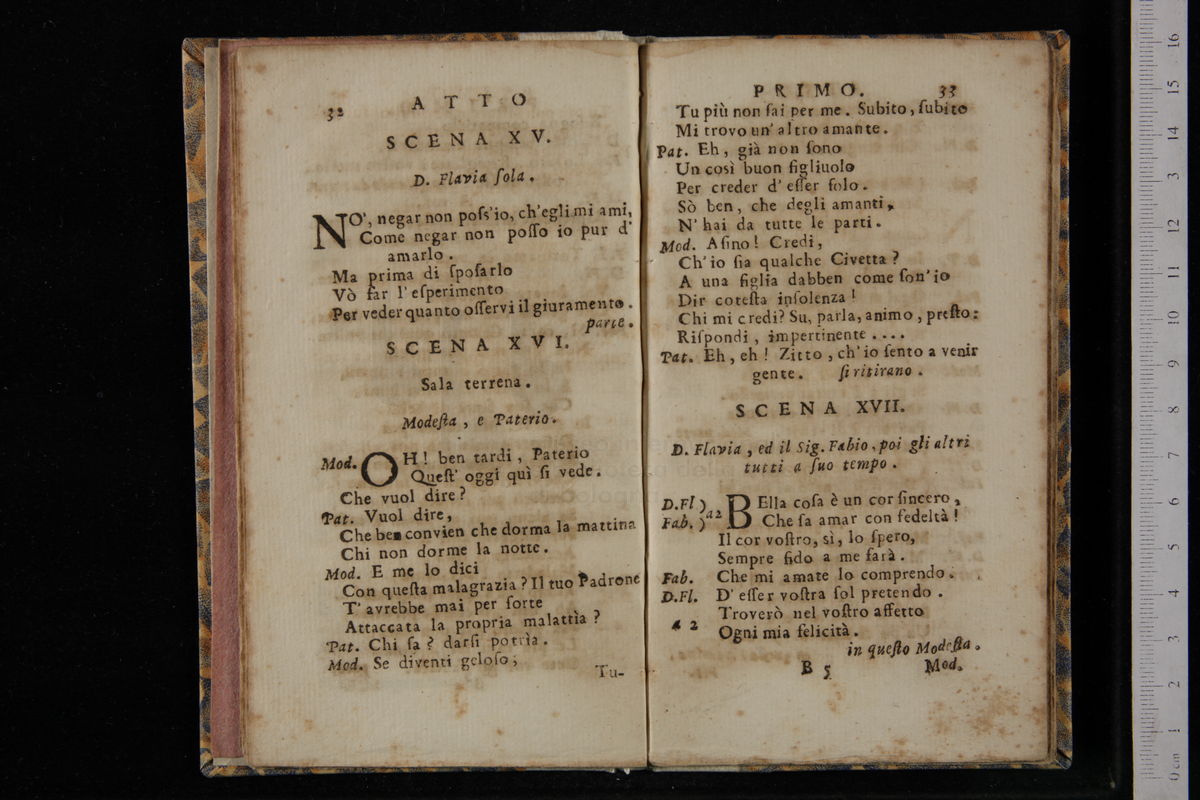 32 ATTO
SCENA XV.
D. Flavia ſola.
NO', negar non poſs'io, ch'egli mi ami,
Come negar non poſſo io pur d'
amarlo.
Ma prima di ſpoſarlo
Vò far l'eſperimento
Per veder quanto oſſervi il giuramento.
parte.
SCENA XVI.
Sala terrena.
Modeſta, e Paterio.
Mod. OH! ben tardi, Paterio
Queſt' oggi quì ſi vede.
Che vuol dire?
Pat. Vuol dire,
Che ben convien che dorma la mattina
Chi non dorme la notte.
Mod. E me lo dici
Con queſta malagrazia? Il tuo Padrone
T' avrebbe mai per ſorte
Attaccata la propria malattìa?
Pat. Chi ſa? darſi potrìa.
Mod. Se diventi geloſo;
Tu-
PRIMO. 33
Tu più non ſai per me. Subito, ſubito
Mi trovo un' altro amante.
Pat. Eh, già non ſono
Un così buon figliuolo
Per creder d' eſſer ſolo.
Sò ben, che degli amanti,
N' hai da tutte le parti.
Mod. Aſino! Credi,
Ch' io ſia qualche Civetta?
A una figlia dabben come ſon' io
Dir coteſta inſolenza!
Chi mi credi? Su, parla, animo, preſto:
Riſpondi, impertinente ....
Pat. Eh, eh! Zitto, ch' io ſento a venir
gente. ſi ritirano.
SCENA XVII.
D. Flavia, ed il Sig. Fabio, poi gli altri
tutti a ſuo tempo.
D.Fl ) a 2 BElla coſa è un cor ſincero,
Fab. ) Che ſa amar con fedeltà!
Il cor voſtro, sì, lo ſpero,
Sempre fido a me ſarà.
Fab. Che mi amate lo comprendo.
D.Fl. D' eſſer voſtra ſol pretendo.
Troverò nel voſtro affetto
a 2 Ogni mia felicità.
in queſto Modeſta.
B 5 Mod.
0 cm 1 2 3 4 5 6 7 8 9 10 11 12 13 14 15 16